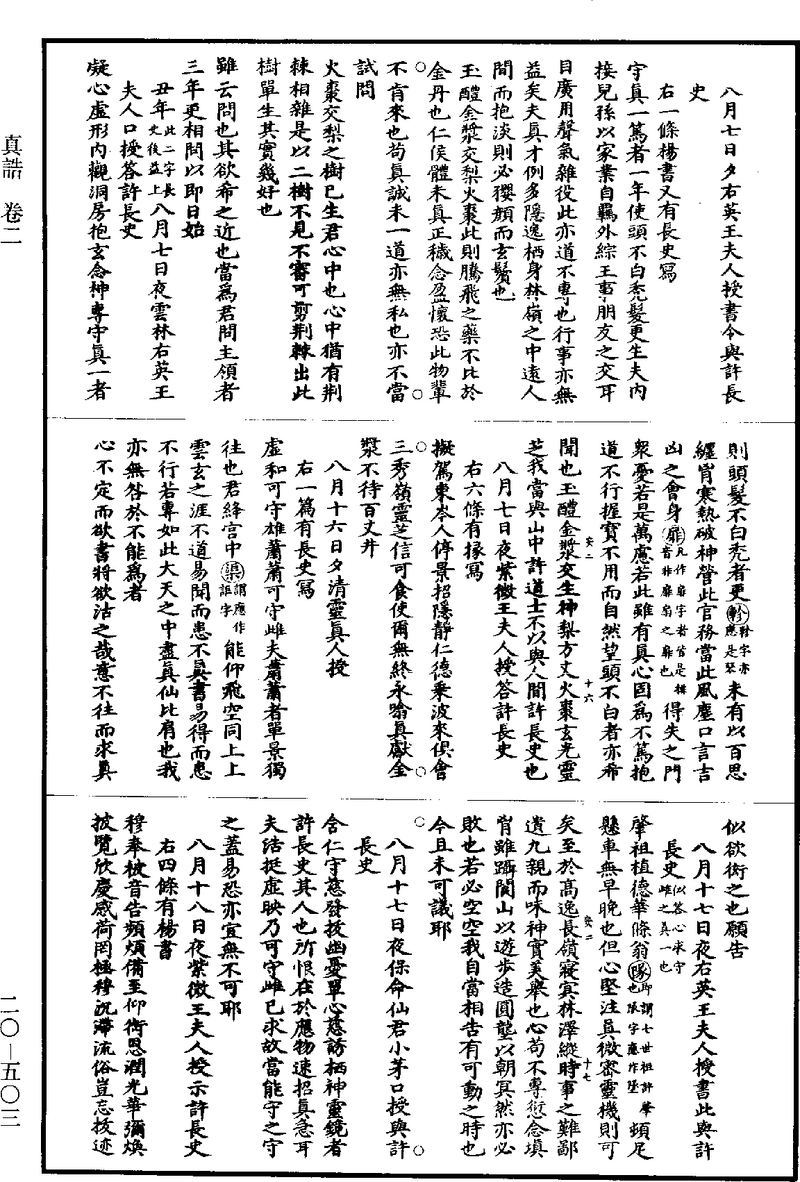 八月七日夕右英王夫人授書令與許長
史
右一條楊書又有長史寫
守真一篤者一年使頭不白禿髮更生夫内
接兒孫以家業自羈外綜王事朋友之交耳
目廣用聲氣雜役此亦道不專也行事亦無
益矣夫真才例多隱逸栖身林嶺之中遠人
間而抱淡則必玃顏而玄鬢也
玉醴金漿交梨火棗此則騰飛之藥不比於
金丹也仁侯體未真正穢念盈懷恐此物輩
不肯來也苟真誠未一道亦無私也亦不當
試問
火棗交梨之樹已生君心中也心中猶有荆
棘相雜是以二樹不見不審可剪荆棘出此
樹單生其實幾好也
雖云問也其欲希之近也當爲君問主領者
三年更相問以即日始
丑年此二字長史後益上八月七日夜雲林右英王
夫人口授答許長史
凝心虚形内觀洞房抱玄念神專守真一者
則頭髮不白秃者更軫軫字亦應是鬒未有以百思
纏胷寒熱破神營此官務當此風塵口言吉
凶之會身扉凡作扉字者皆是排音非扉扇之扉也得失之門
衆憂若是萬慮若此雖有真心固爲不篤抱
道不行握寳不用而自然望頭不白者亦希
聞也玉醴金漿交生神梨方丈火棗玄光靈
芝我當與山中許道士不以與人間許長史也
八月七日夜紫微王夫人授答許長史
右六條有掾寫
擬駕東岑人停景招隱靜仁德乘波來俱會
三秀嶺靈芝信可食使爾無終永喻真獻金
漿不待百丈井
八月十六日夕清靈真人授
右一篇有長史寫
虚和可守雄蕭蕭可守雌夫蕭蕭者單景獨
往也君絳宫中渠謂應作詎字能仰飛空同上上
雲玄之涯不道易聞而患不真書易得而患
不行若專如此大天之中盡真仙比肩也我
亦無咎於不能爲者
心不定而欲書將欲沽之哉意不往而求真
似欲衒之也願告
八月十七日夜右英王夫人授書此與許
長史似答心求守雌之真一也
肇祖植德華條翁隊即謂七世祖許肇也隊字應作墜頓足
懸車無早晚也但心堅注真微密靈機則可
矣至於髙逸長嶺寢宾林澤縱時事之難鄙
遺九親而味神實美舉也心苟不專愆念填
胷雖躡閬山以遊步造圓壟以朝冥然亦必
敗也若必空空我自當相告有可動之時也
今且未可議耶
八月十七日夜保命仙君小茅口授與許
長史
含仁守慈發拔幽憂單心慈訪栖神靈鏡者
許長史其人也所恨在於應物速招真急耳
夫浩挺虚映乃可守雌已求故當能守之守
之蓋易恐亦宜無不可耶
八月十八日夜紫微王夫人授示許長史
右四條有楊書
穆奉被音告頻煩備至仰銜恩潤光華彌煥
披覽欣慶感荷罔極穆沉滯流俗豈忘拔迹
真誥 卷二
二〇—五〇三